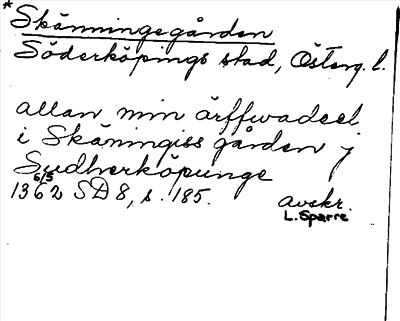 * Skänningegården
Söderköpings stad, Österg. l.
allan min ärffwadeel
i Skäningiss gården j
Sudherköpunge
6/5
1362 SD 8, s. 185. avskr.
L. Sparre